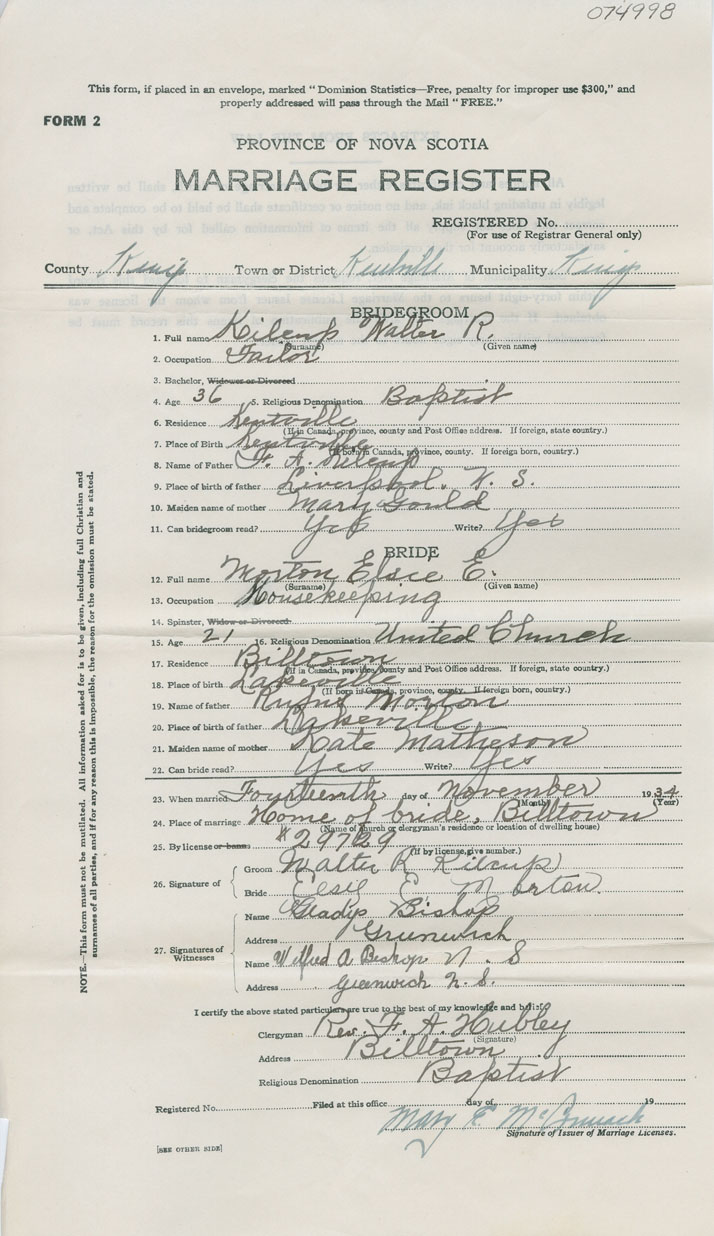 074998
This form, if placed in an envelope, marked "Dominion Statistics—Free, penalty for improper use $300," and
properly addressed will pass through the Mail "FREE."
FORM 2
PROVINCE OF NOVA SCOTIA
MARRIAGE REGISTER
REGISTERED No.
(For use of Registrar General only)
County Kings Town or District Kentville Municipality Kings
BRIDEGROOM
1. Full name Kilcup Walter R.
(Surname) (Given name)
2. Occupation Tailor
3. Bachelor, Widower or Divorced
4. Age 36 5. Religious Denomination Baptist
6. Residence Kentville
(If in Canada, province, county and Post Office address. If foreign, state country.)
7. Place of Birth Kentville
(If born in Canada, province, county. If foreign born, country.)
8. Name of Father F. A. Kilcup
9. Place of birth of father Liverpool, N. S.
10. Maiden name of mother Mary Gould
11. Can bridegroom read? Yes Write? Yes
BRIDE
12. Full name Morton Elsie E.
(Surname) (Given name)
13. Occupation Housekeeping
14. Spinster, Widow or Divorced
15. Age 21 16. Religious Denomination United Church
17. Residence Billtown
(If in Canada, province, county and Post Office address. If foreign, state country.)
18. Place of birth Lakeville
(If born in Canada, province, county. If foreign born, country.)
19. Name of father Rufus Morton
20. Place of birth of father Lakeville
21. Maiden name of mother Kate Matheson
22. Can bride read? Yes Write? Yes
23. When married Fourteenth day of November 1934
(Month) (Year)
24. Place of marriage Home of bride, Billtown
(Name of church or clergyman's residence or location of dwelling house)
25. By license or banns #29729
(If by license, give number.)
26. Signature of
Groom Walter R Kilcup
Bride Elsie E. Morton.
27. Signatures of Witnesses
Name Gladys Bishop
Address Grunwich
Name Wilfred A Bishop N. S
Address Greenwich N. S.
I certify the above stated particulars are true to the best of my knowledge and belief.
Clergyman Rev. F. A. Hubley
(Signature)
Address Billtown
Religious Denomination Baptist
Registered No. Filed at this office day of 19
Mary E.
Signature of Issuer of Marriage Licenses.
[SEE OTHER SIDE]
NOTE.—This form must not be mutilated. All information asked for is to be given, including full Christian and
surnames of all parties, and if for any reason this is impossible, the reason for the omission must be stated.